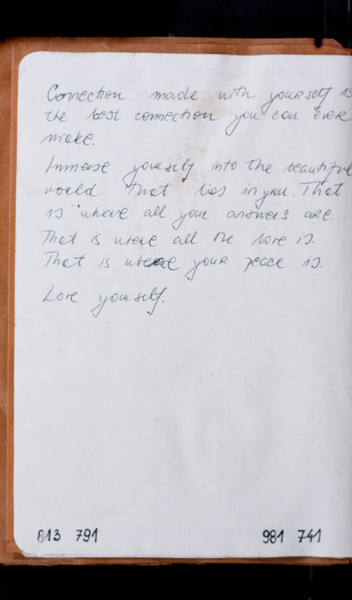 Connection made with yourself is
the best connection you can ever
make.
Immerse yourself into the beautiful
world that lies in you. That
is where all your answers are.
That is where all the love is.
That is where your peace is.
Love yourself.
813 791 981 741